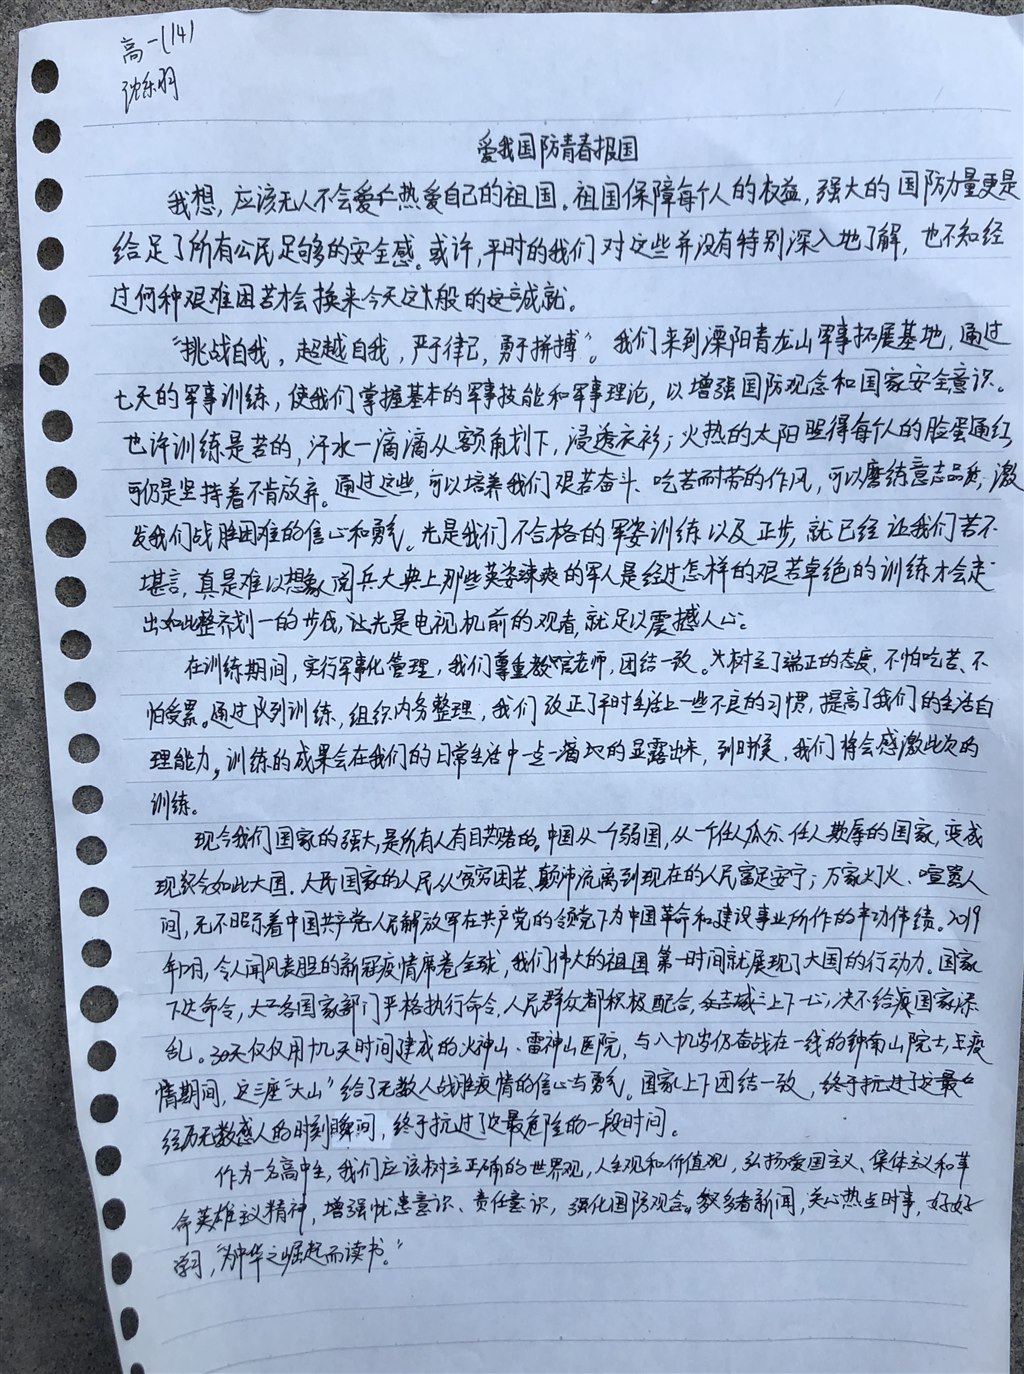 高一(14)
沈乐羽
爱我国防青春报国
我想，应该无人不会热爱自己的祖国。祖国保障每个人的权益，强大的国防力量更是
给足了所有公民足够的安全感。或许，平时的我们对这些并没有特别深入地了解，也不知经
过何种艰难困苦才会换来今天这般的成就。
“挑战自我，超越自我，严于律己，勇于拼搏”。我们来到溧阳青龙山军事拓展基地，通过
七天的军事训练，使我们掌握基本的军事技能和军事理论，以增强国防观念和国家安全意识。
也许训练是苦的，汗水一滴滴从额角划下，浸透衣衫；火热的太阳照得每个人的脸蛋通红，
可仍是坚持着不肯放弃。通过这些，可以培养我们艰苦奋斗、吃苦耐劳的作风，可以磨练意志品质，激
发我们战胜困难的信心和勇气。光是我们不合格的军姿训练以及正步，就已经让我们苦不
堪言，真是难以想象阅兵大典上那些英姿飒爽的军人是经过怎样的艰苦卓绝的训练才会走
出如此整齐划一的步伐，让光是电视机前的观者，就足以震撼人心。
在训练期间，实行军事化管理，我们尊重教官老师，团结一致。树立了端正的态度、不怕吃苦、不
怕受累。通过队列训练，组织内务整理，我们改正了平时生活上一些不良的习惯，提高了我们的生活自
理能力。训练的成果会在我们的日常生活中一点一滴地的显露出来，到时候，我们将会感激此次的
训练。
现今我们国家的强大，是所有人有目共睹的。中国从一个弱国，从一个任人瓜分、任人欺辱的国家，变成
现今如此大国。人民国家的人民从贫穷困苦、颠沛流离到现在的人民富足安宁；万家灯火、喧嚣人
间，无不昭示着中国共产党人民解放军在共产党的领导下为中国革命和建设事业所作的丰功伟绩。2019
年12月，令人闻风丧胆的新冠疫情席卷全球，我们伟大的祖国第一时间就展现了大国的行动力。国家
下达命令，各国家部门严格执行命令，人民群众都积极配合，上下一心，决不给国家添
乱。仅仅用十几天时间建成的火神山、雷神山医院，与八十几岁仍奋战在一线的钟南山院士，在疫
情期间，这三座“大山”给了无数人战胜疫情的信心与勇气。国家上下团结一致，终于抗过了这最
经历无数感人的时刻瞬间，终于抗过了这最危险的一段时间。
作为一名高中生，我们应该树立正确的世界观，人生观和价值观，弘扬爱国主义、集体主义和革
命英雄主义精神，增强忧患意识、责任意识，强化国防观念。多看新闻，关心热点时事，好好
学习，“为中华之崛起而读书。”